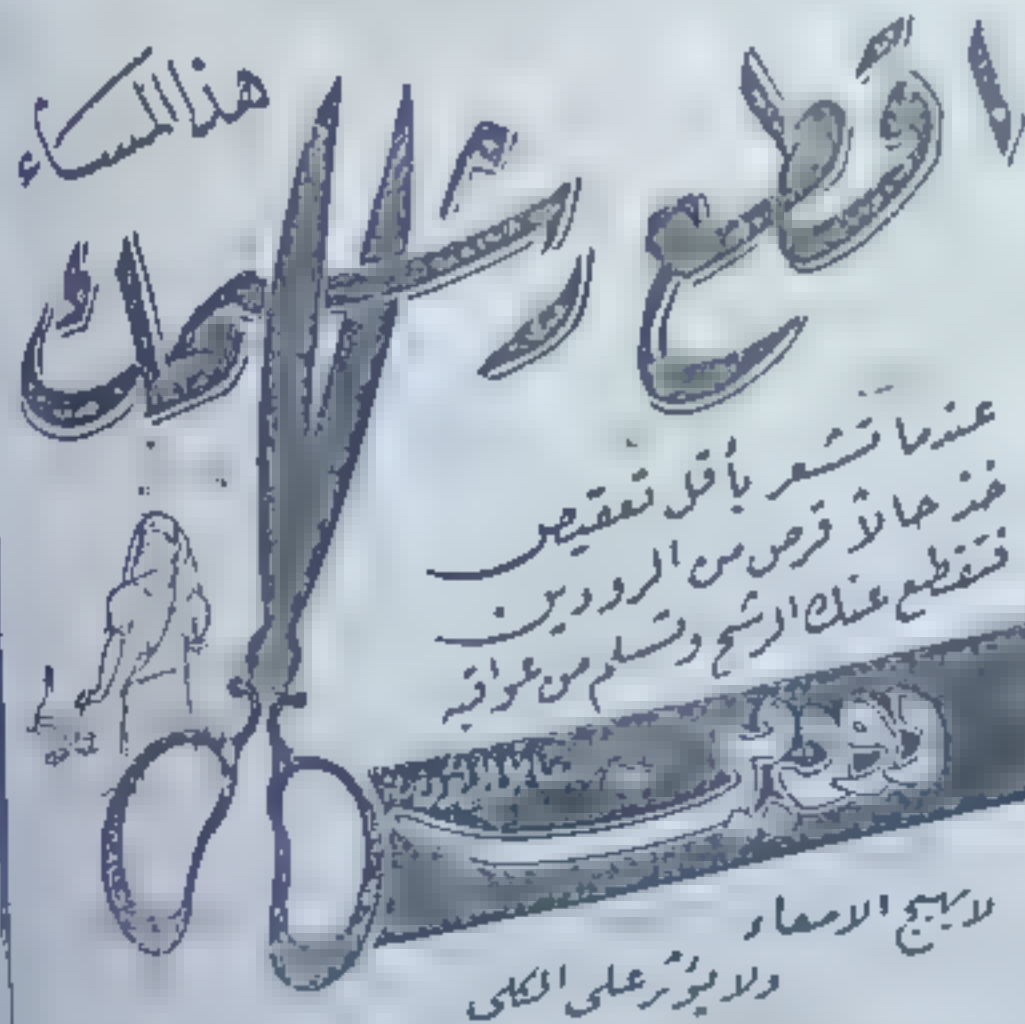 اقطع رشحك هذا المساء
عندما تشعر بأقل تعقيص
خذ حالاً قرص من الرودين
فتقطع عنك الرشح وتسلم من عواقبه
لا يهيج الامعاء
ولا يؤثر على الكلى